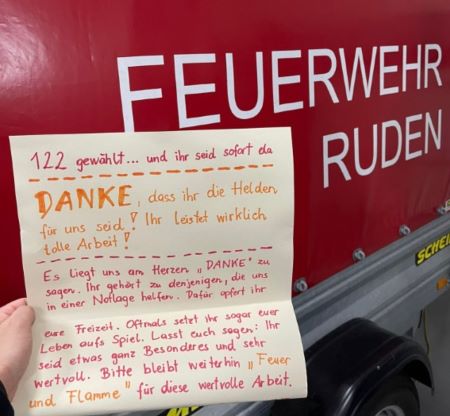 FEUERWEHR
RUDEN
SCHEI
122 gewählt... und ihr seid sofort da
DANKE, dass ihr die Helden
für uns seid! Ihr leistet wirklich
tolle Arbeit!
Es liegt uns am Herzen „DANKE" zu
sagen. Ihr gehört zu denjenigen, die uns
in einer Notlage helfen. Dafür opfert ihr
eure Freizeit. Oftmals setzt ihr sogar euer
Leben aufs Spiel. Lasst euch sagen: Ihr
seid etwas ganz Besonderes und sehr
wertvoll. Bitte bleibt weiterhin „Feuer
und Flamme" für diese wertvolle Arbeit.